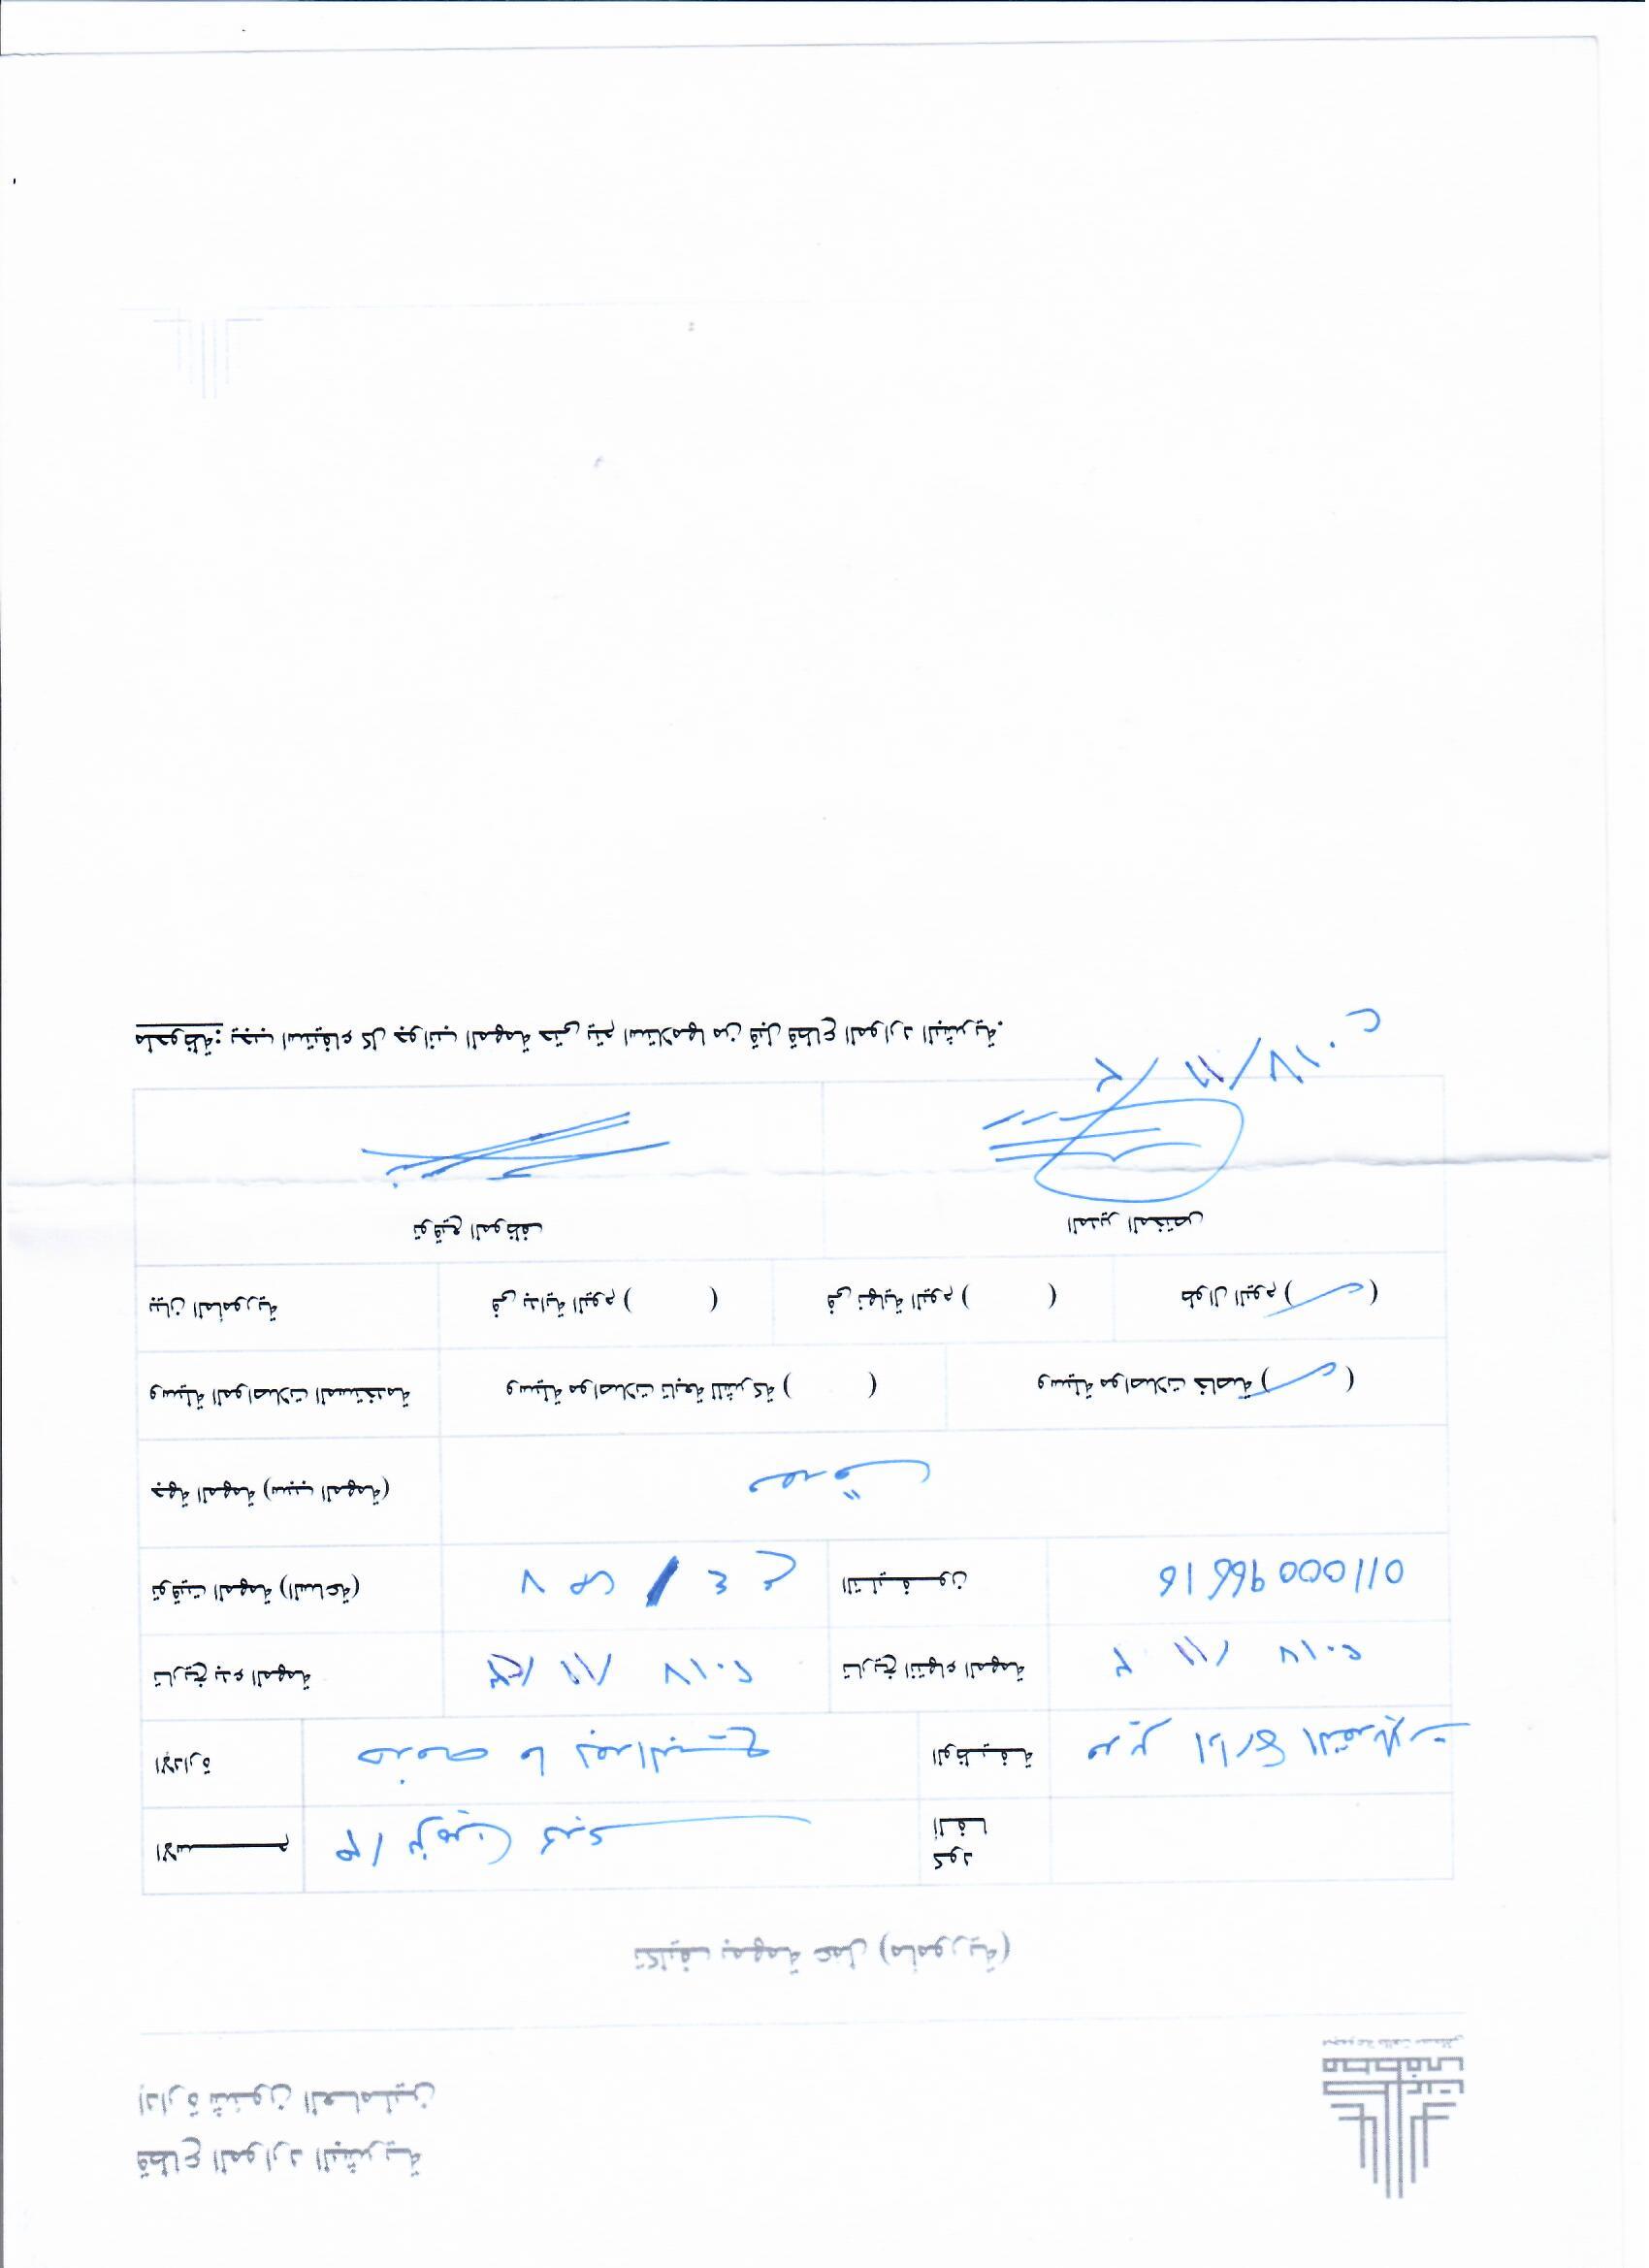 قطاع الموارد البشرية
إدارة شئون العاملين
طلعت
مصطفى
مجموعة طلعت مصطفى
تكليف بمهمة عمل (مأمورية)
الاسم م/ نرمين
كود
ألفا
الإدارة خدمه ما بعد البيع الوظيفة مدير ادارة التعديلات
تاريخ بدء المهمة /١١/ ٢٠١٧ تاريخ انتهاء المهمة ٣ /١١ ٢٠١٧
توقيت المهمة (الساعة) ٧ ص / ٤ م التليفون 01100096616
جهة المهمة (سبب المهمة)
وسيلة المواصلات المستخدمة وسيلة مواصلات تابعة للشركة ( ) وسيلة مواصلات خاصة (✓)
بيان المأمورية فى بداية اليوم ( ) فى نهاية اليوم ( ) طوال اليوم (✓)
توقيع الموظف المدير المختص
٣/١١/٢٠١٧
ملحوظة: يجب استيفاء كل جوانب المهمة حتى يتم استلامها من قبل قطاع الموارد البشرية.